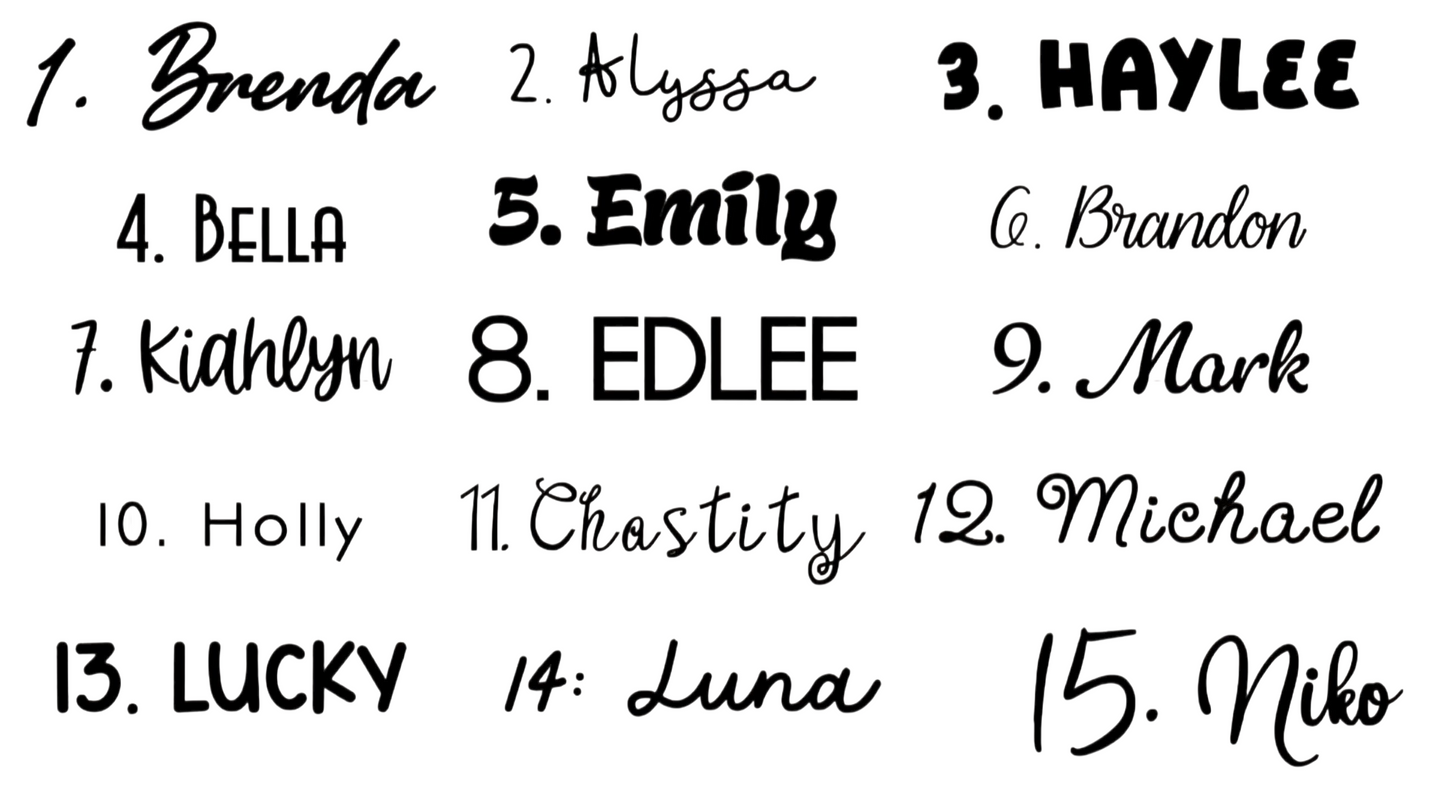 1. Brenda 2. Alyssa 3. HAYLEE
4. BELLA 5. Emily 6. Brandon
7. Kiahlyn 8. EDLEE 9. Mark
10. Holly 11. Chastity 12. Michael
13. LUCKY 14: Luna 15. Niko